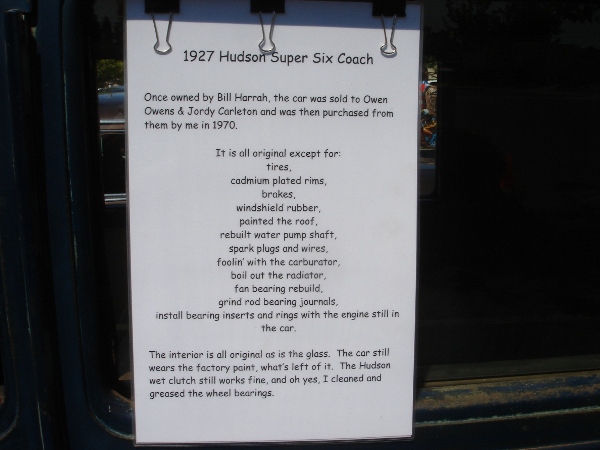 1927 Hudson Super Six Coach
Once owned by Bill Harrah, the car was sold to Owen
Owens & Jordy Carleton and was then purchased from
them by me in 1970.
It is all original except for:
tires,
cadmium plated rims,
brakes,
windshield rubber,
painted the roof,
rebuilt water pump shaft,
spark plugs and wires,
foolin' with the carburator,
boil out the radiator,
fan bearing rebuild,
grind rod bearing journals,
install bearing inserts and rings with the engine still in
the car.
The interior is all original as is the glass. The car still
wears the factory paint, what's left of it. The Hudson
wet clutch still works fine, and oh yes, I cleaned and
greased the wheel bearings.